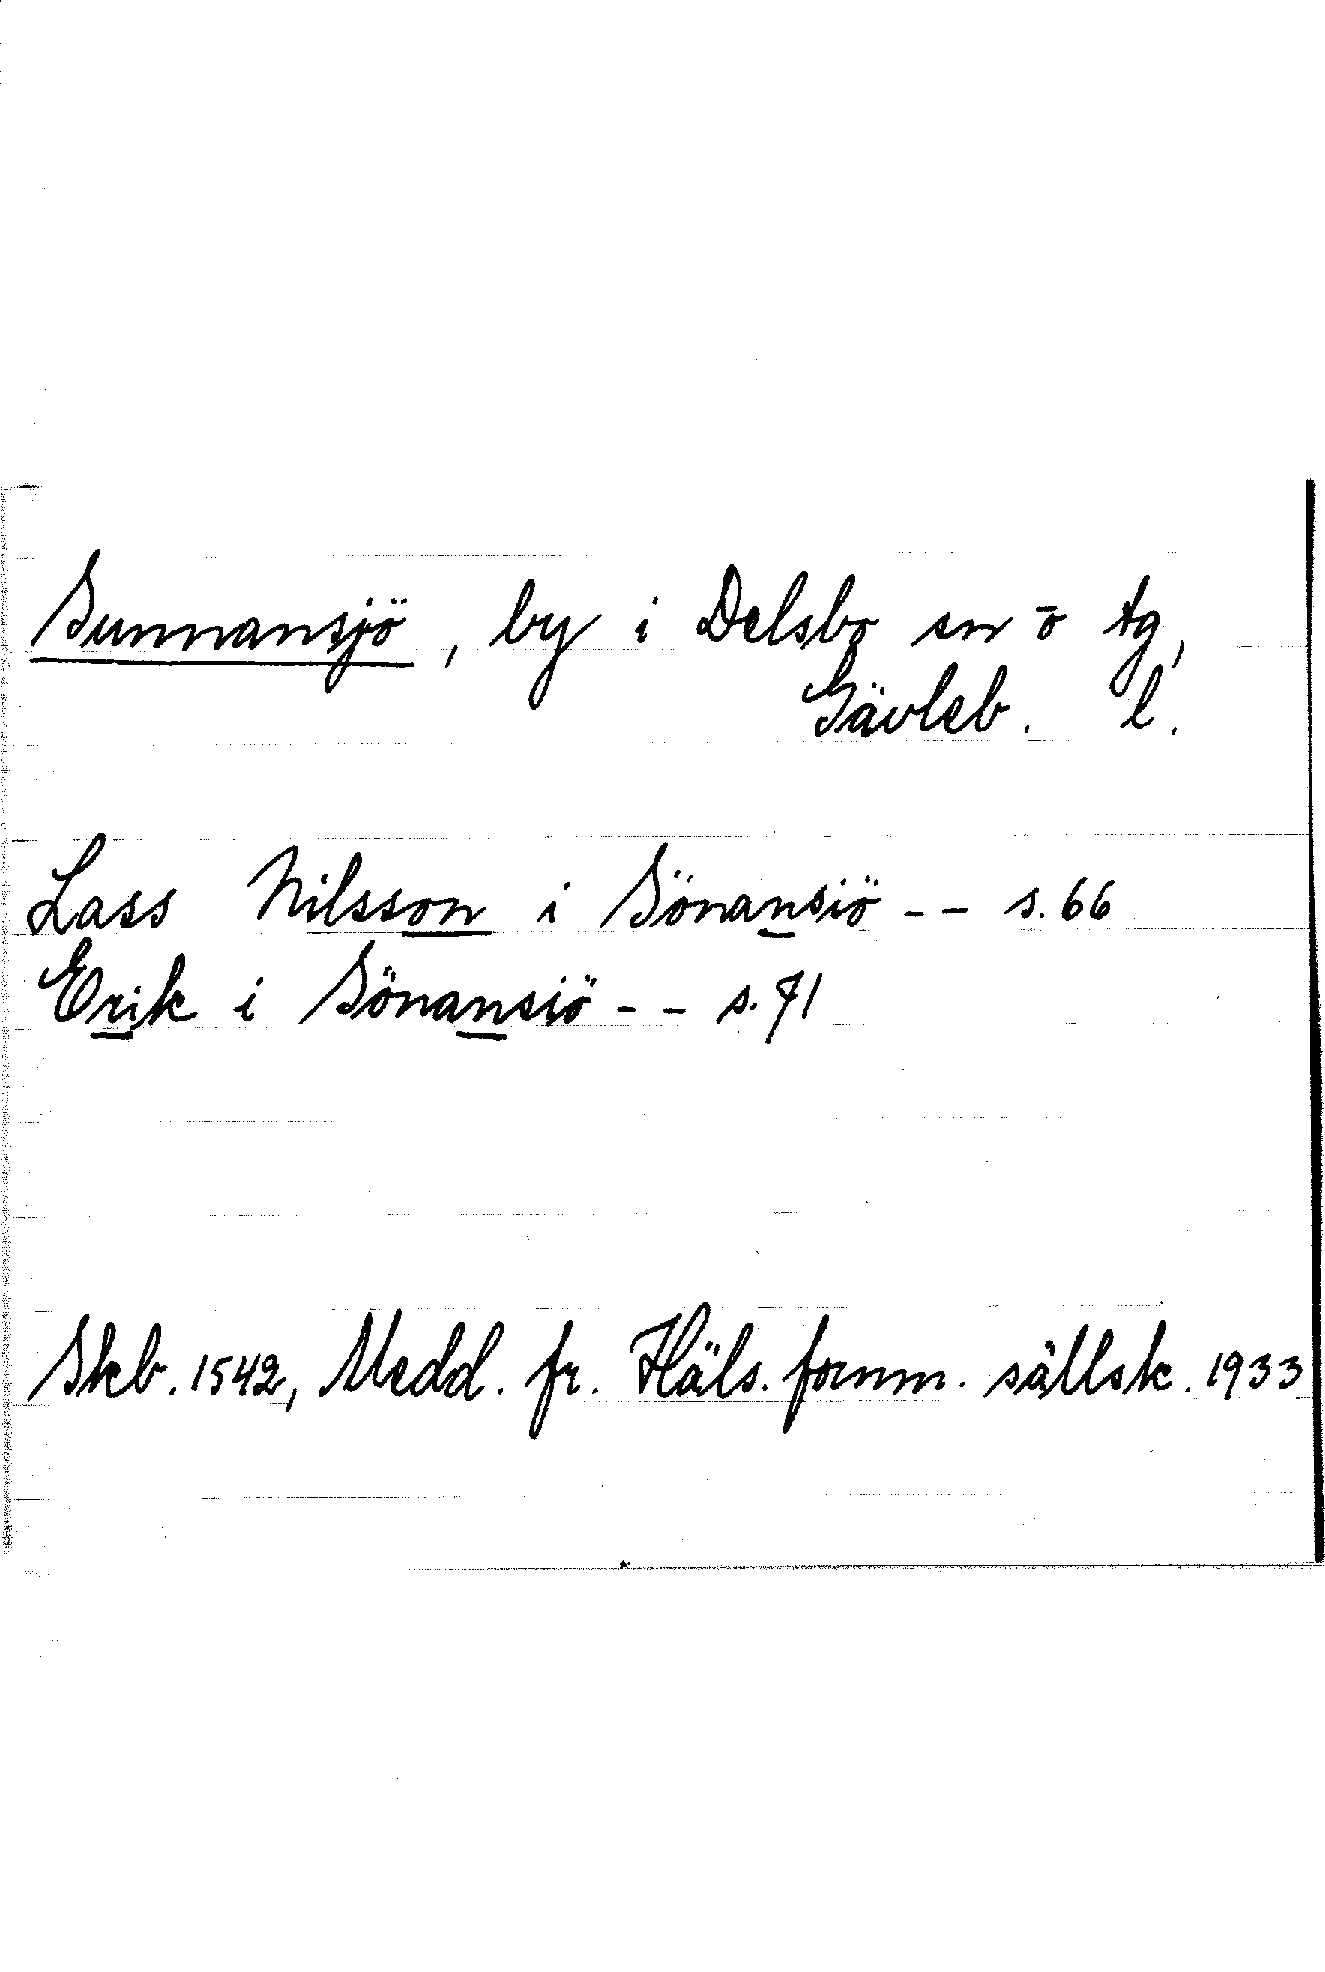 Sunnansjö, by i Delsbo sn o tg,
Gävleb. l.
Lass Nilsson i Sönansiö -- s. 66
Erik i Sönansiö -- s. 71
Skb. 1542, Medd. fr. Häls. fornm. sällsk. 1933